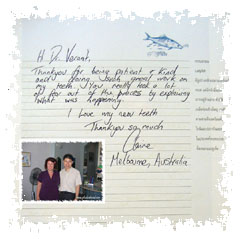 Hi Dr. Varant,
Thankyou for being patient & kind
and doing such great work on
my teeth. You really took a lot
of fear out of the process by explaining
what was happening.
I love my new teeth
Thankyou so much
Claire
Melbourne, Australia